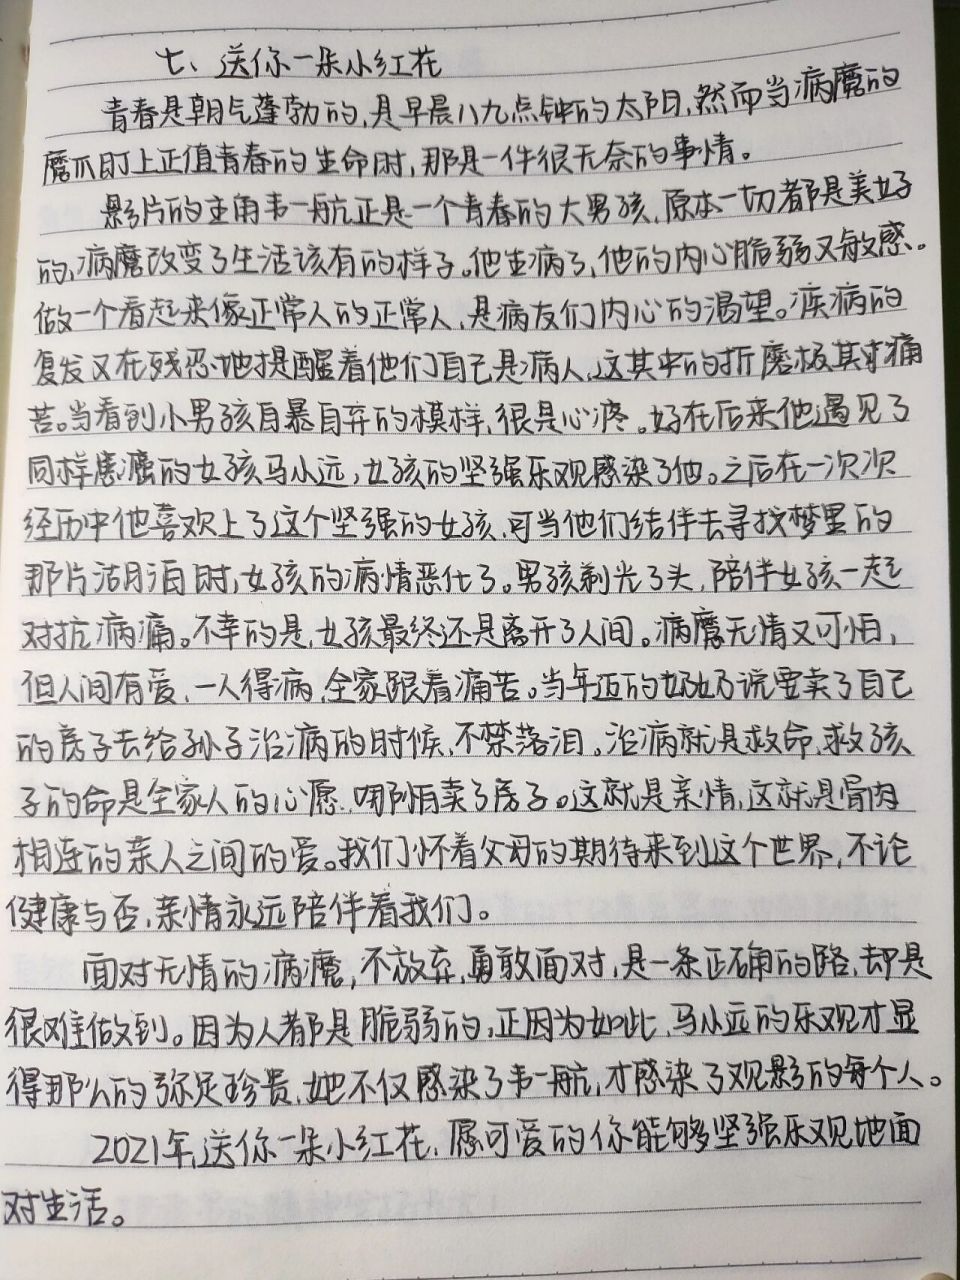 七、送你一朵小红花
青春是朝气蓬勃的，是早晨八九点钟的太阳，然而当病魔的
魔爪盯上正值青春的生命时，那是一件很无奈的事情。
影片的主角韦一航正是一个青春的大男孩，原本一切都是美好
的，病魔改变了生活该有的样子。他生病了，他的内心脆弱又敏感。
做一个看起来像正常人的正常人，是病友们内心的渴望。疾病的
复发又在残忍地提醒着他们自己是病人，这其中的折磨极其痛
苦。当看到小男孩自暴自弃的模样，很是心疼。好在后来他遇见了
同样患癌的女孩马小远，女孩的坚强乐观感染了他。之后在一次次
经历中他喜欢上了这个坚强的女孩，可当他们结伴去寻找梦里的
那片湖泊时，女孩的病情恶化了。男孩剃光了头，陪伴女孩一起
对抗病痛。不幸的是，女孩最终还是离开了人间。病魔无情又可怕，
但人间有爱，一人得病，全家跟着痛苦。当年迈的奶奶说要卖了自己
的房子去给孙子治病的时候，不禁落泪。治病就是救命，救孩
子的命是全家人的心愿，哪怕卖了房子。这就是亲情，这就是骨肉
相连的亲人之间的爱。我们怀着父母的期待来到这个世界，不论
健康与否，亲情永远陪伴着我们。
面对无情的病魔，不放弃，勇敢面对，是一条正确的路，却是
很难做到。因为人都是脆弱的，正因为如此，马小远的乐观才显
得那么的弥足珍贵，她不仅感染了韦一航，才感染了观影的每个人。
2021年，送你一朵小红花，愿可爱的你能够坚强乐观地面
对生活。